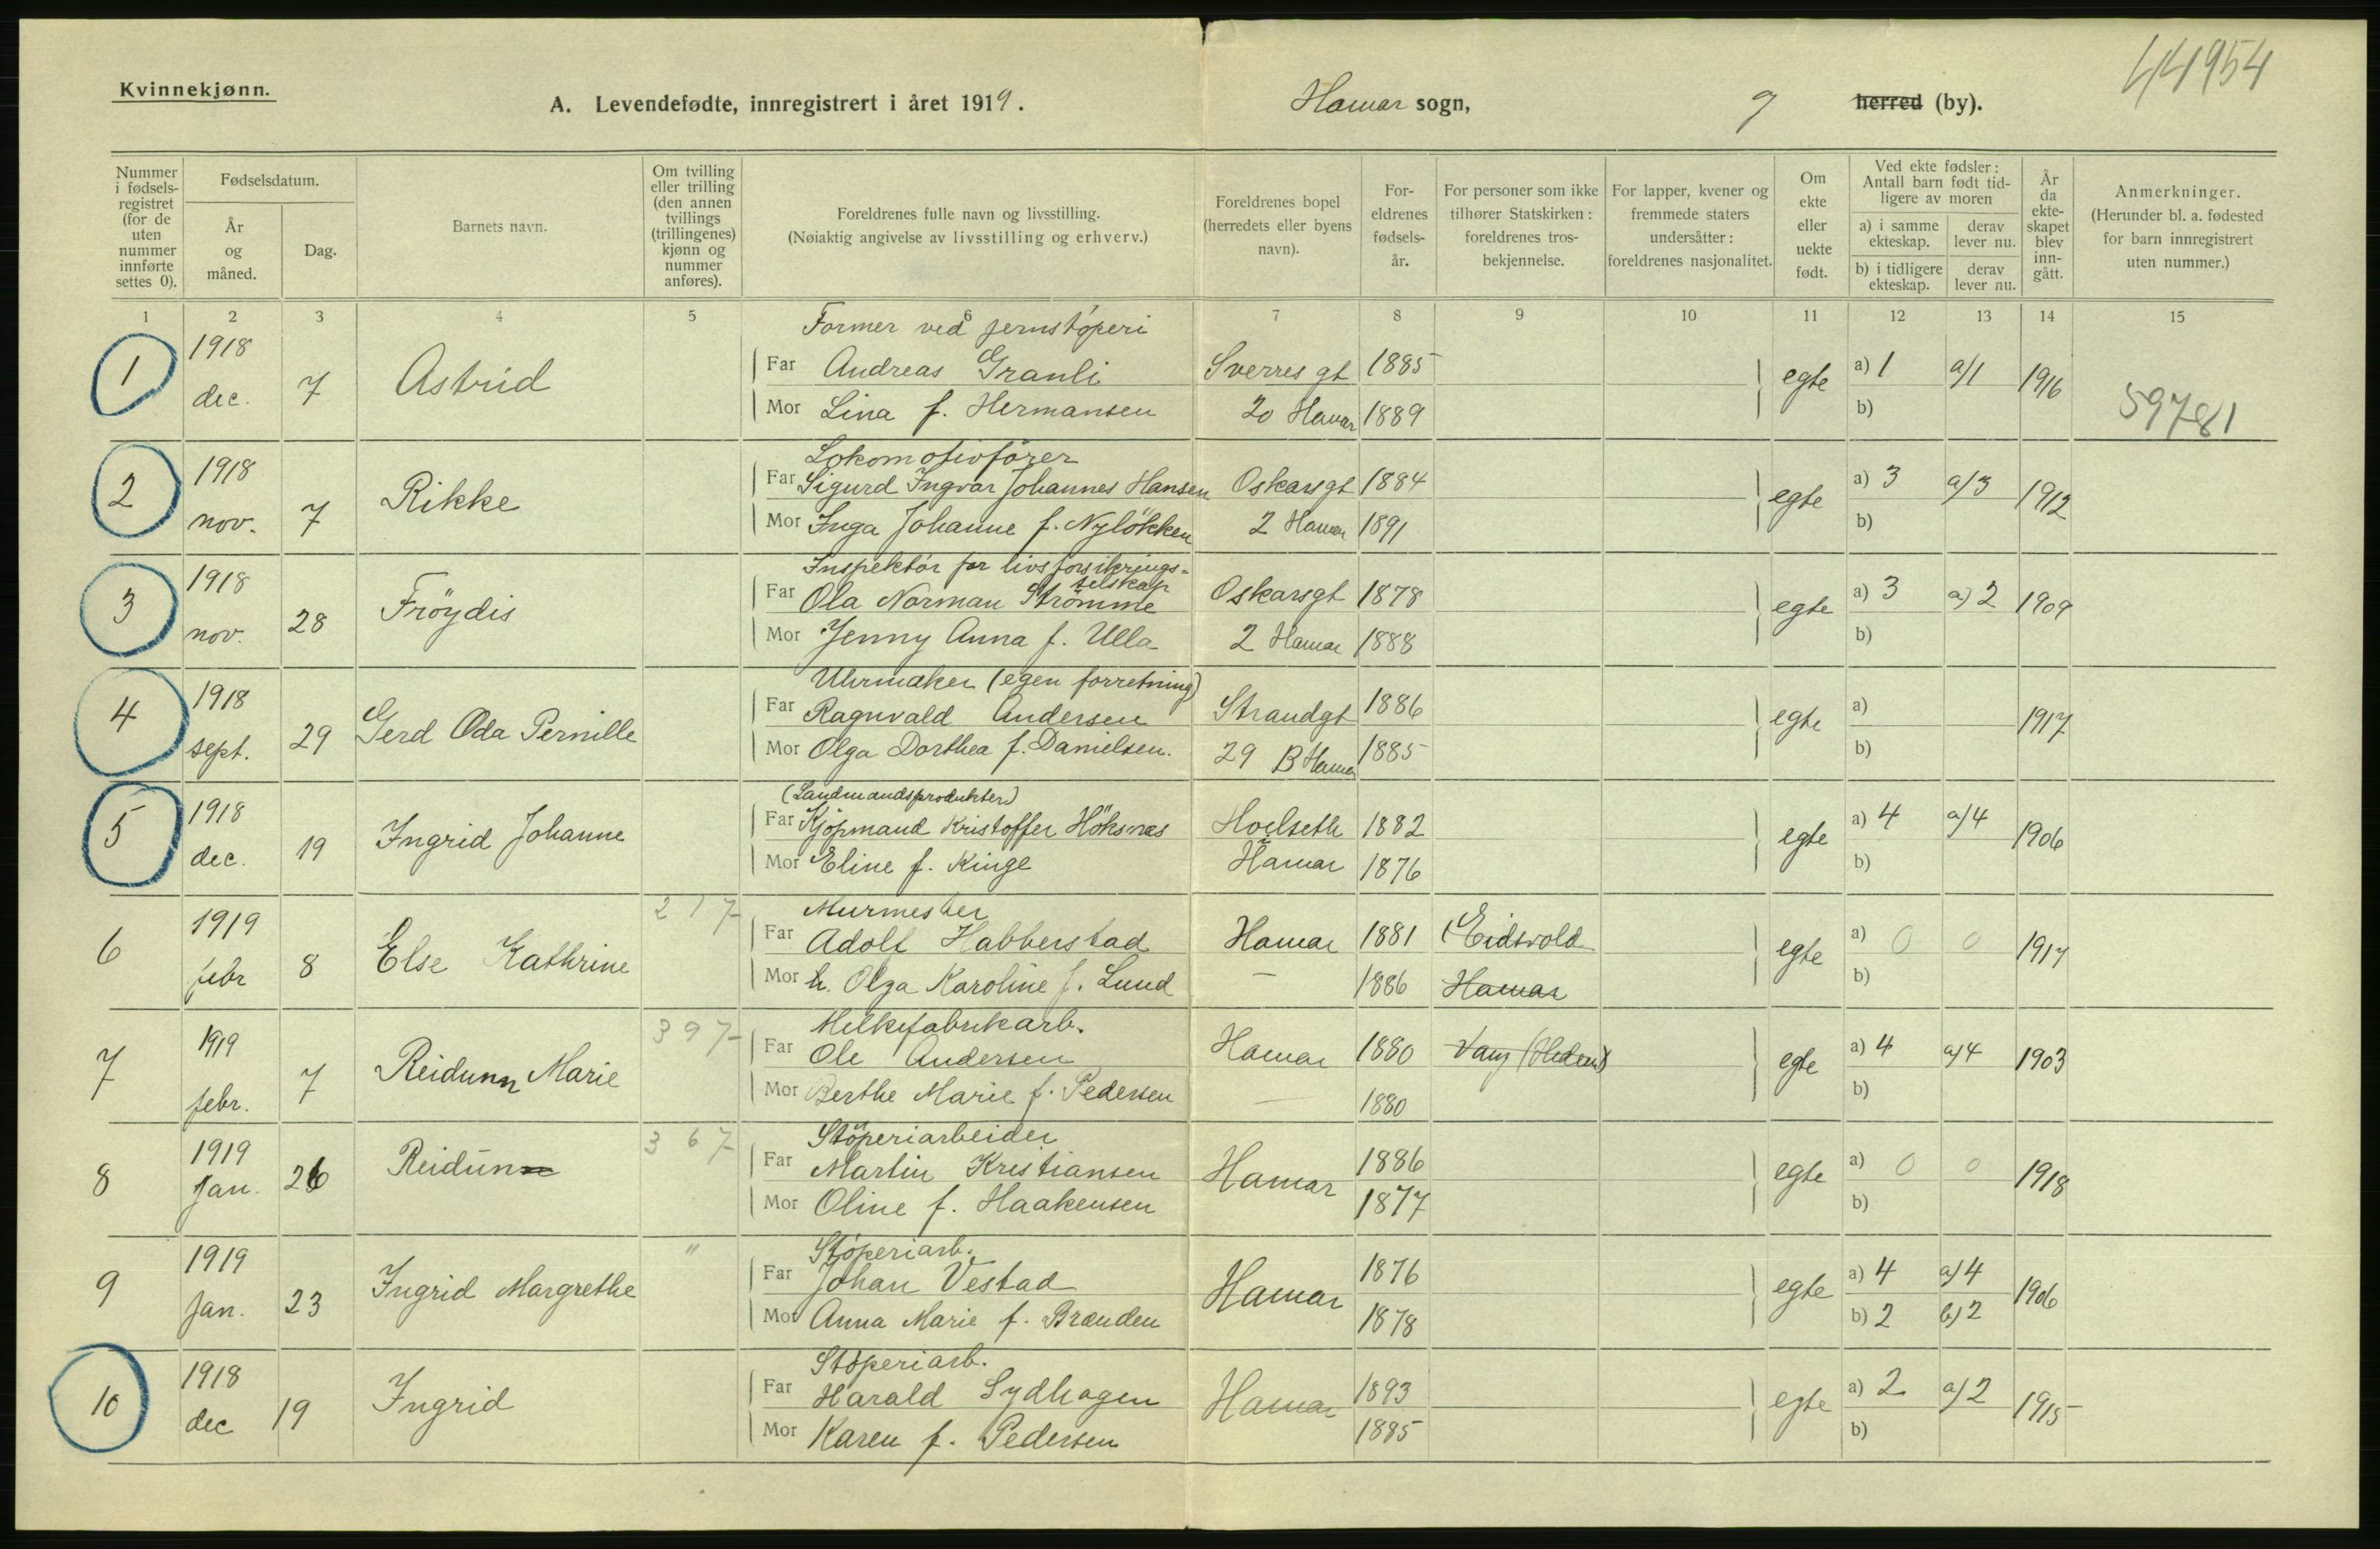 44954
Kvinnekjønn.
A. Levendefødte, innregistrert i året 1919.
Hamar sogn,
9
herred (by).
Nummer i fødsels-registret (for de uten nummer innførte settes 0).
Fødselsdatum.
År og måned.
Dag.
Barnets navn.
Om tvilling eller trilling (den annen tvillings (trillingenes) kjønn og nummer anføres).
Foreldrenes fulle navn og livsstilling.
(Nøiaktig angivelse av livsstilling og erhverv.)
Foreldrenes bopel (herredets eller byens navn).
For-eldrenes fødsels-år.
For personer som ikke tilhører Statskirken: foreldrenes tros-bekjennelse.
For lapper, kvener og fremmede staters undersåtter: foreldrenes nasjonalitet.
Om ekte eller uekte født.
Ved ekte fødsler: Antall barn født tid-ligere av moren
a) i samme ekteskap.
derav lever nu.
b) i tidligere ekteskap.
derav lever nu.
År da ekte-skapet blev inn-gått.
Anmerkninger.
(Herunder bl. a. fødested for barn innregistrert uten nummer.)
1 2 3 4 5 6 7 8 9 10 11 12 13 14 15
Former ved jernstøperi
1 1918 dec. 7 Astrid
Far Andreas Granli Sverres gt 1885
egte a) 1 a/1 1916
Mor Lina f. Hermansen 20 Hamar 1889
b)
59781
Lokomotivfører
2 1918 nov. 7 Rikke
Far Sigurd Ingvar Johannes Hansen Oskarsgt 1884
egte a) 3 a/3 1912
Mor Inga Johanne f. Nyløkken 2 Hamar 1891
b)
Inspektør for livsforsikrings-selskap
3 1918 nov. 28 Fröydis
Far Ola Norman Strömme Oskarsgt 1878
egte a) 3 a) 2 1909
Mor Jenny Anna f. Ulla 2 Hamar 1888
b)
Uhrmaker (egen forretning)
4 1918 sept. 29 Gerd Oda Pernille
Far Ragnvald Andersen Strandgt 1886
egte a) 1917
Mor Olga Dorthea f. Danielsen. 29 B Hamar 1885
b)
(Landmandsprodukter)
5 1918 dec. 19 Ingrid Johanne
Far Kjöpmand Kristoffer Höksnes Hoelseth 1882
egte a) 4 a/4 1906
Mor Eline f. Kinge Hamar 1876
b)
217
Murmester
6 1919 febr 8 Else Kathrine
Far Adolf Habberstad Hamar 1881 (Eidsvold
egte a) 0 0 1917
Mor h. Olga Karoline f. Lund — 1886 Hamar
b)
397
Melkefabrikarb.
7 1919 febr. 7 Reidunn Marie
Far Ole Andersen Hamar 1880 Vang (Hedem)
egte a) 4 a/4 1903
Mor Berthe Marie f. Pedersen — 1880
b)
367
Støperiarbeider
8 1919 Jan. 26 Reidunn
Far Martin Kristiansen Hamar 1886
egte a) 0 0 1918
Mor Oline f. Haakensen 1877
b)
"
Støperiarb.
9 1919 Jan. 23 Ingrid Margrethe
Far Johan Vestad Hamar 1876
egte a) 4 a/4 1906
Mor Anna Marie f. Brænden 1878
b) 2 b) 2
Støperiarb.
10 1918 dec 19 Ingrid
Far Harald Sydhagen Hamar 1893
egte a) 2 a/2 1915
Mor Karen f. Pedersen 1895
b)